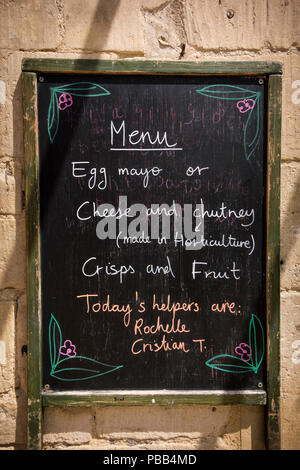 Menu
Egg mayo or
Cheese and chutney
(made in Horticulture)
Crisps and Fruit
Today's helpers are:
Rochelle
Cristian T.
alamy
Image ID: PBB4MD
www.alamy.com